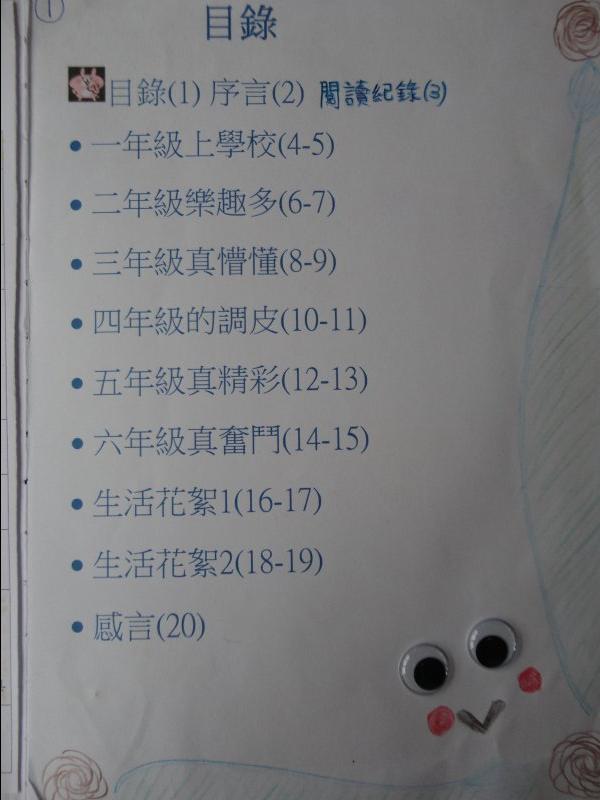 ①
目錄
目錄(1) 序言(2) 閱讀紀錄(3)
• 一年級上學校(4-5)
• 二年級樂趣多(6-7)
• 三年級真懵懂(8-9)
• 四年級的調皮(10-11)
• 五年級真精彩(12-13)
• 六年級真奮鬥(14-15)
• 生活花絮1(16-17)
• 生活花絮2(18-19)
• 感言(20)